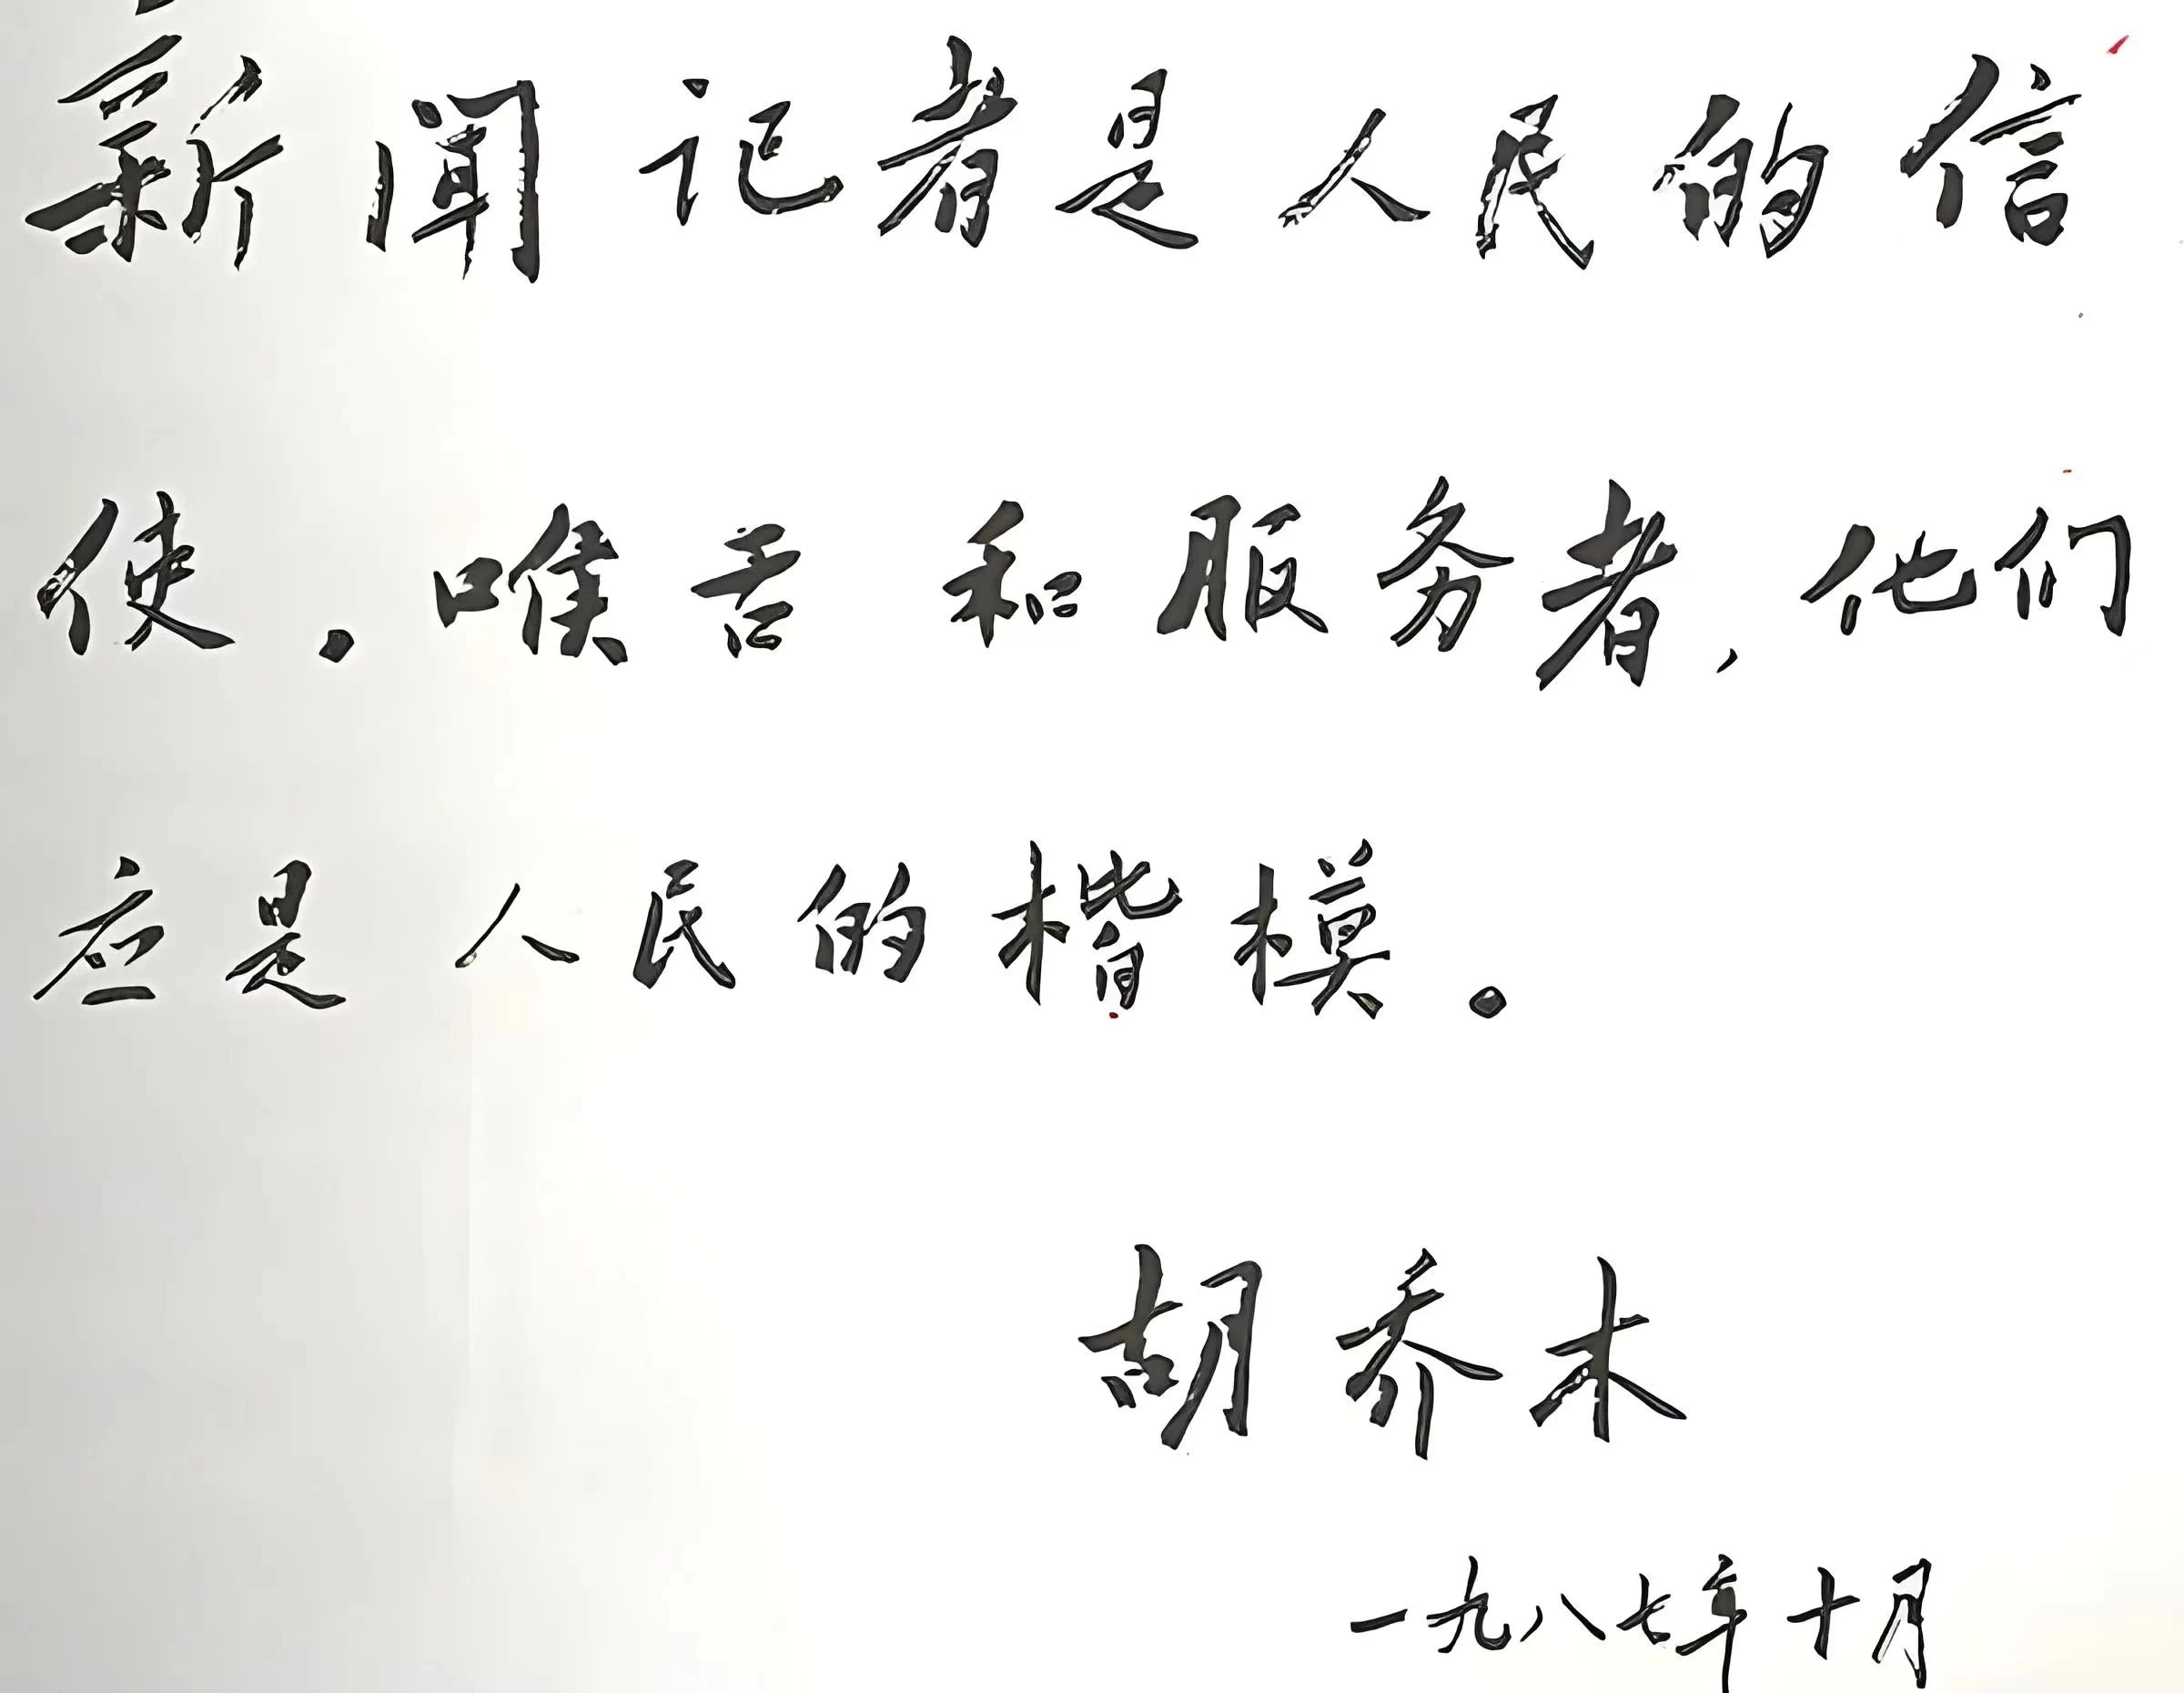 新闻记者是人民的信
使。喉舌和服务者，他们
应是人民的楷模。
胡乔木
一九八七年十月